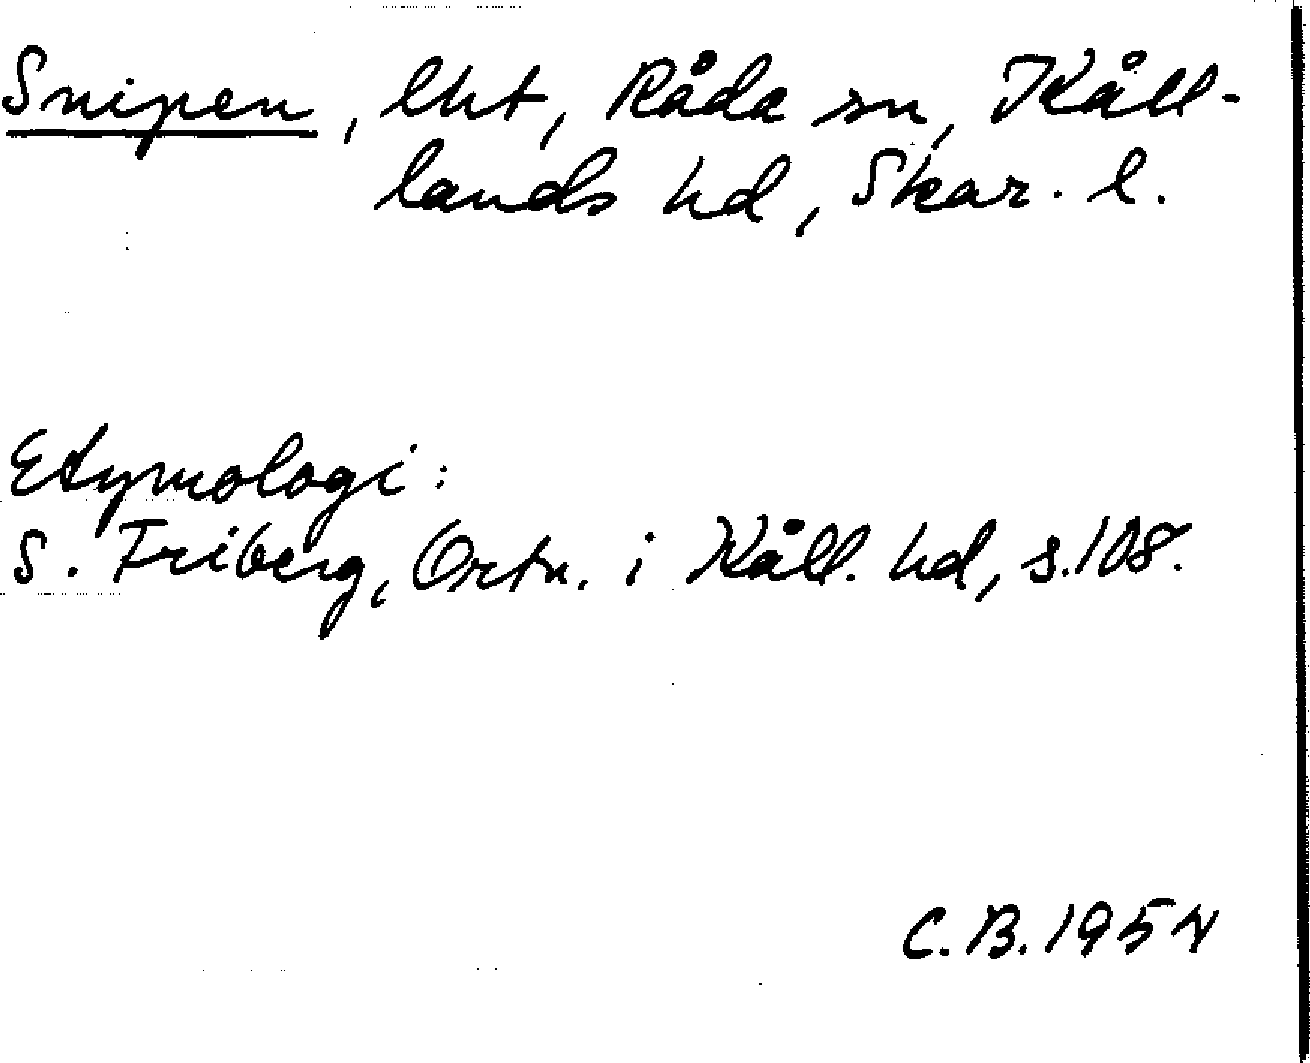 Snipen, lht, Råda sn, Kåll-
lands hd, Skar. l.
Etymologi:
S. Friberg, Ortn. i Kåll. hd, s.108.
C.B.1954